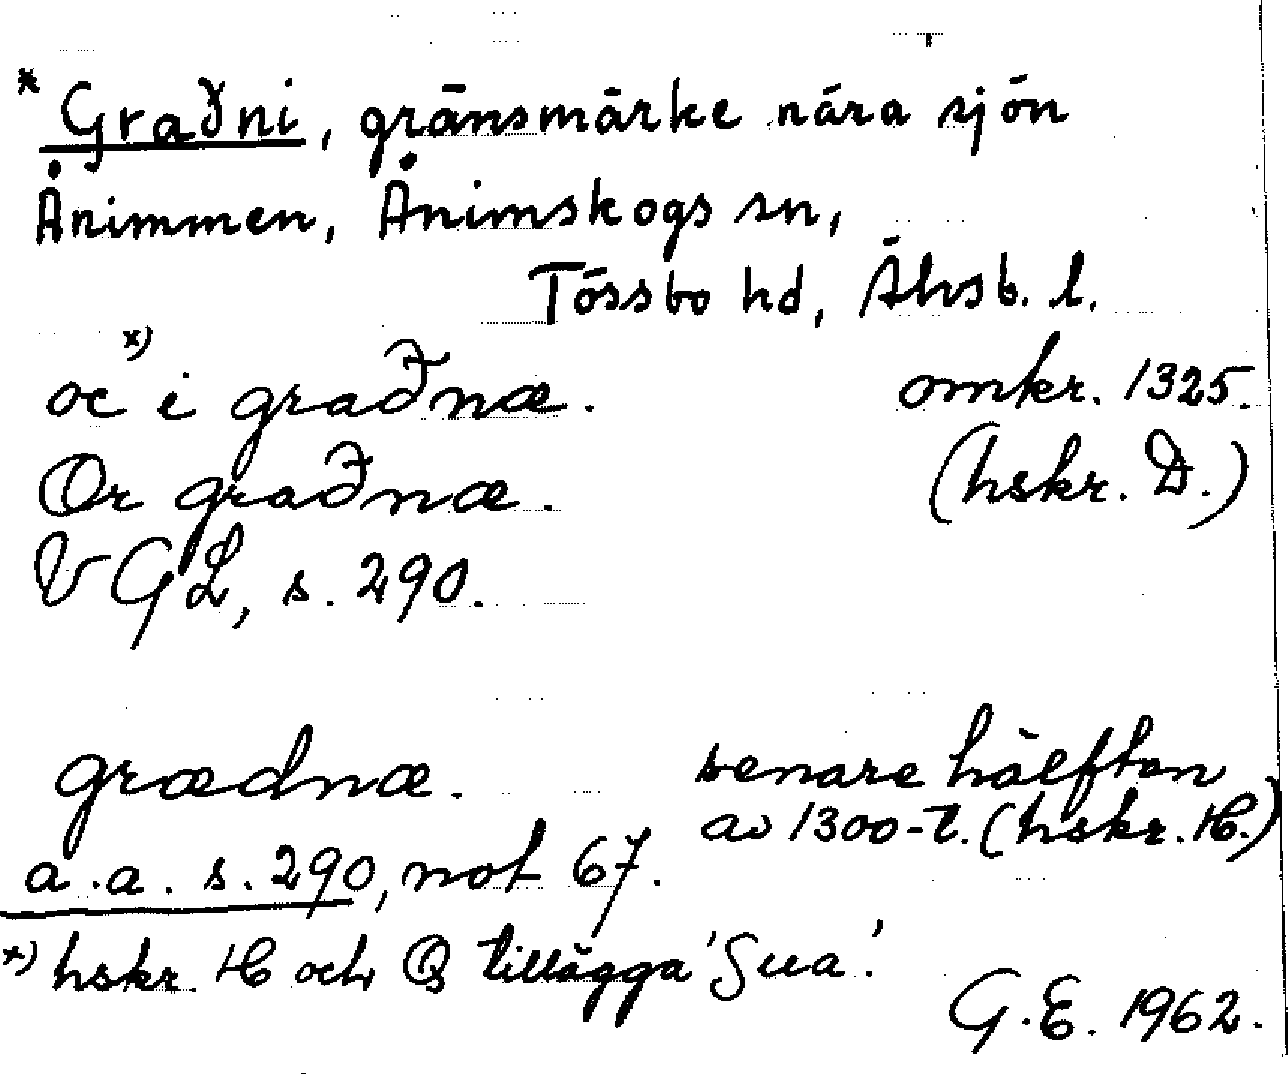 * Graðni, gränsmärke nära sjön
Ånimmen, Ånimskogs sn,
Tössbo hd, Älvsb. l.
oc x) i graðnæ. omkr. 1325.
Or graðnæ. (hskr. D.)
VGL, s. 290.
grædnæ. senare hälften
av 1300-t. (hskr. H.)
a.a. s. 290, not 67.
x) hskr. H och Q tillägga 'Sua'.
G.E. 1962.